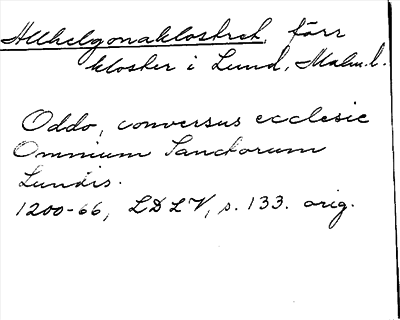 Allhelgonaklostret, förr
kloster i Lund, Malm.l.
Oddo, conversus ecclesie
Omnium Sanctorum
Lundis.
1200-66, LDLV, s. 133. orig.